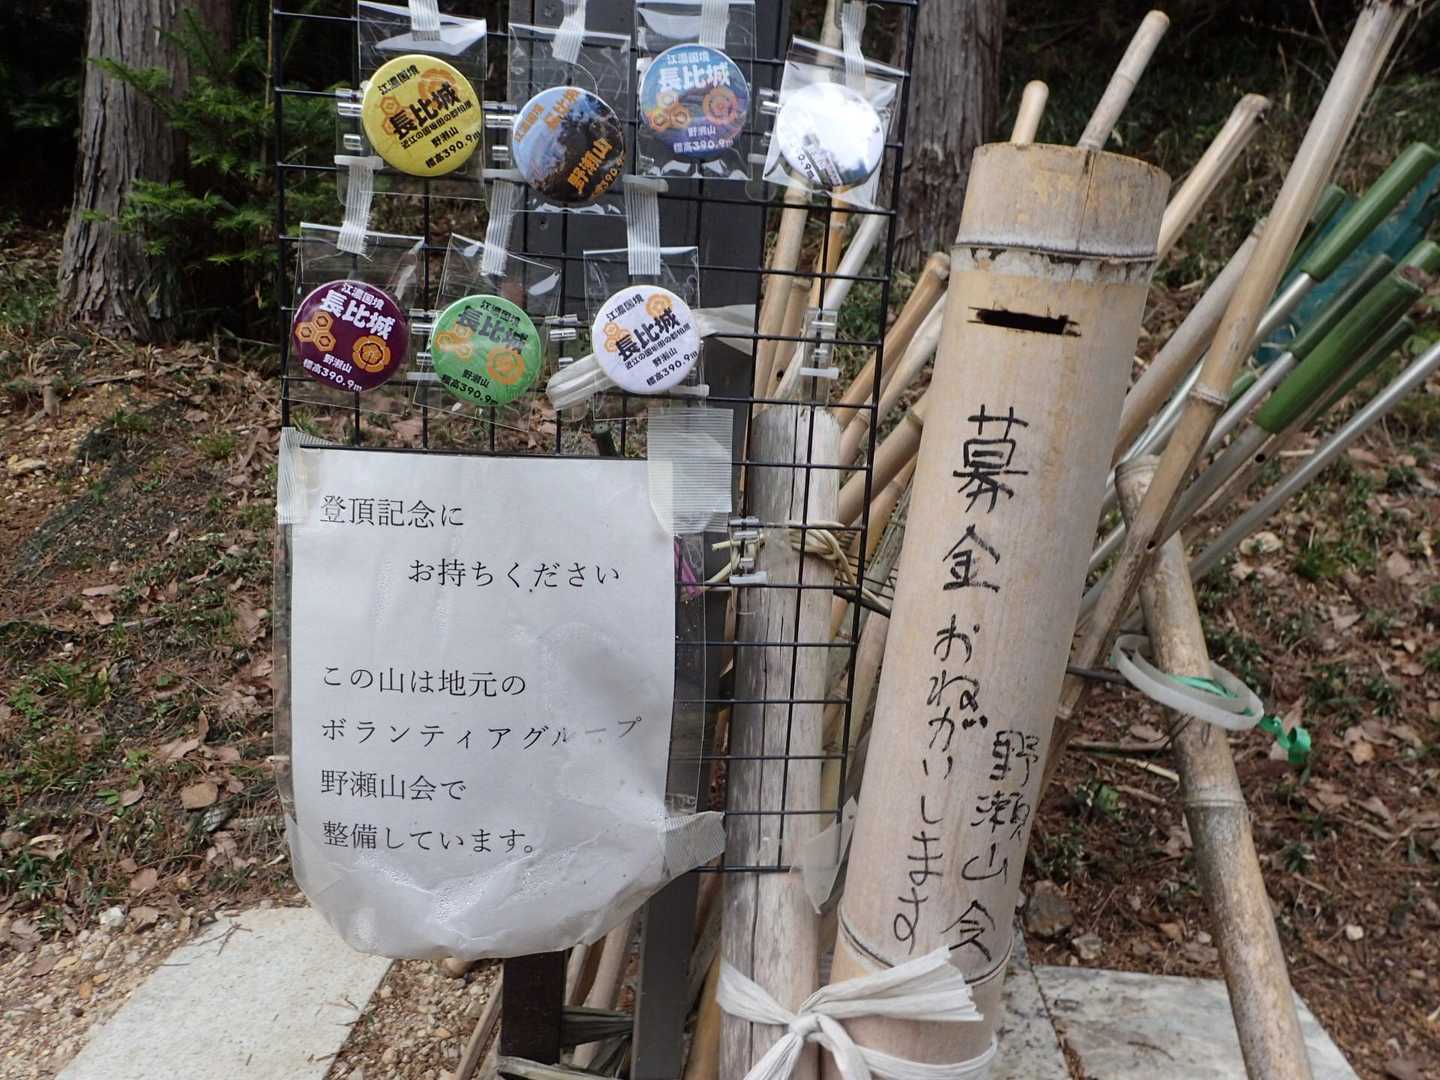 江濃国境
長比城
近江の国柏原の野相原
野瀬山
標高390.9m
江濃国境
長比城
野瀬山
標高390.9m
江濃国境
長比城
野瀬山
標高390.9m
0.9m
江濃国境
長比城
野瀬山
標高390.9m
江濃国境
長比城
野瀬山
標高390.9m
江濃国境
長比城
野瀬山
標高390.9m
登頂記念に
お持ちください
この山は地元の
ボランティアグループ
野瀬山会で
整備しています。
募金おねがいします
野瀬山会